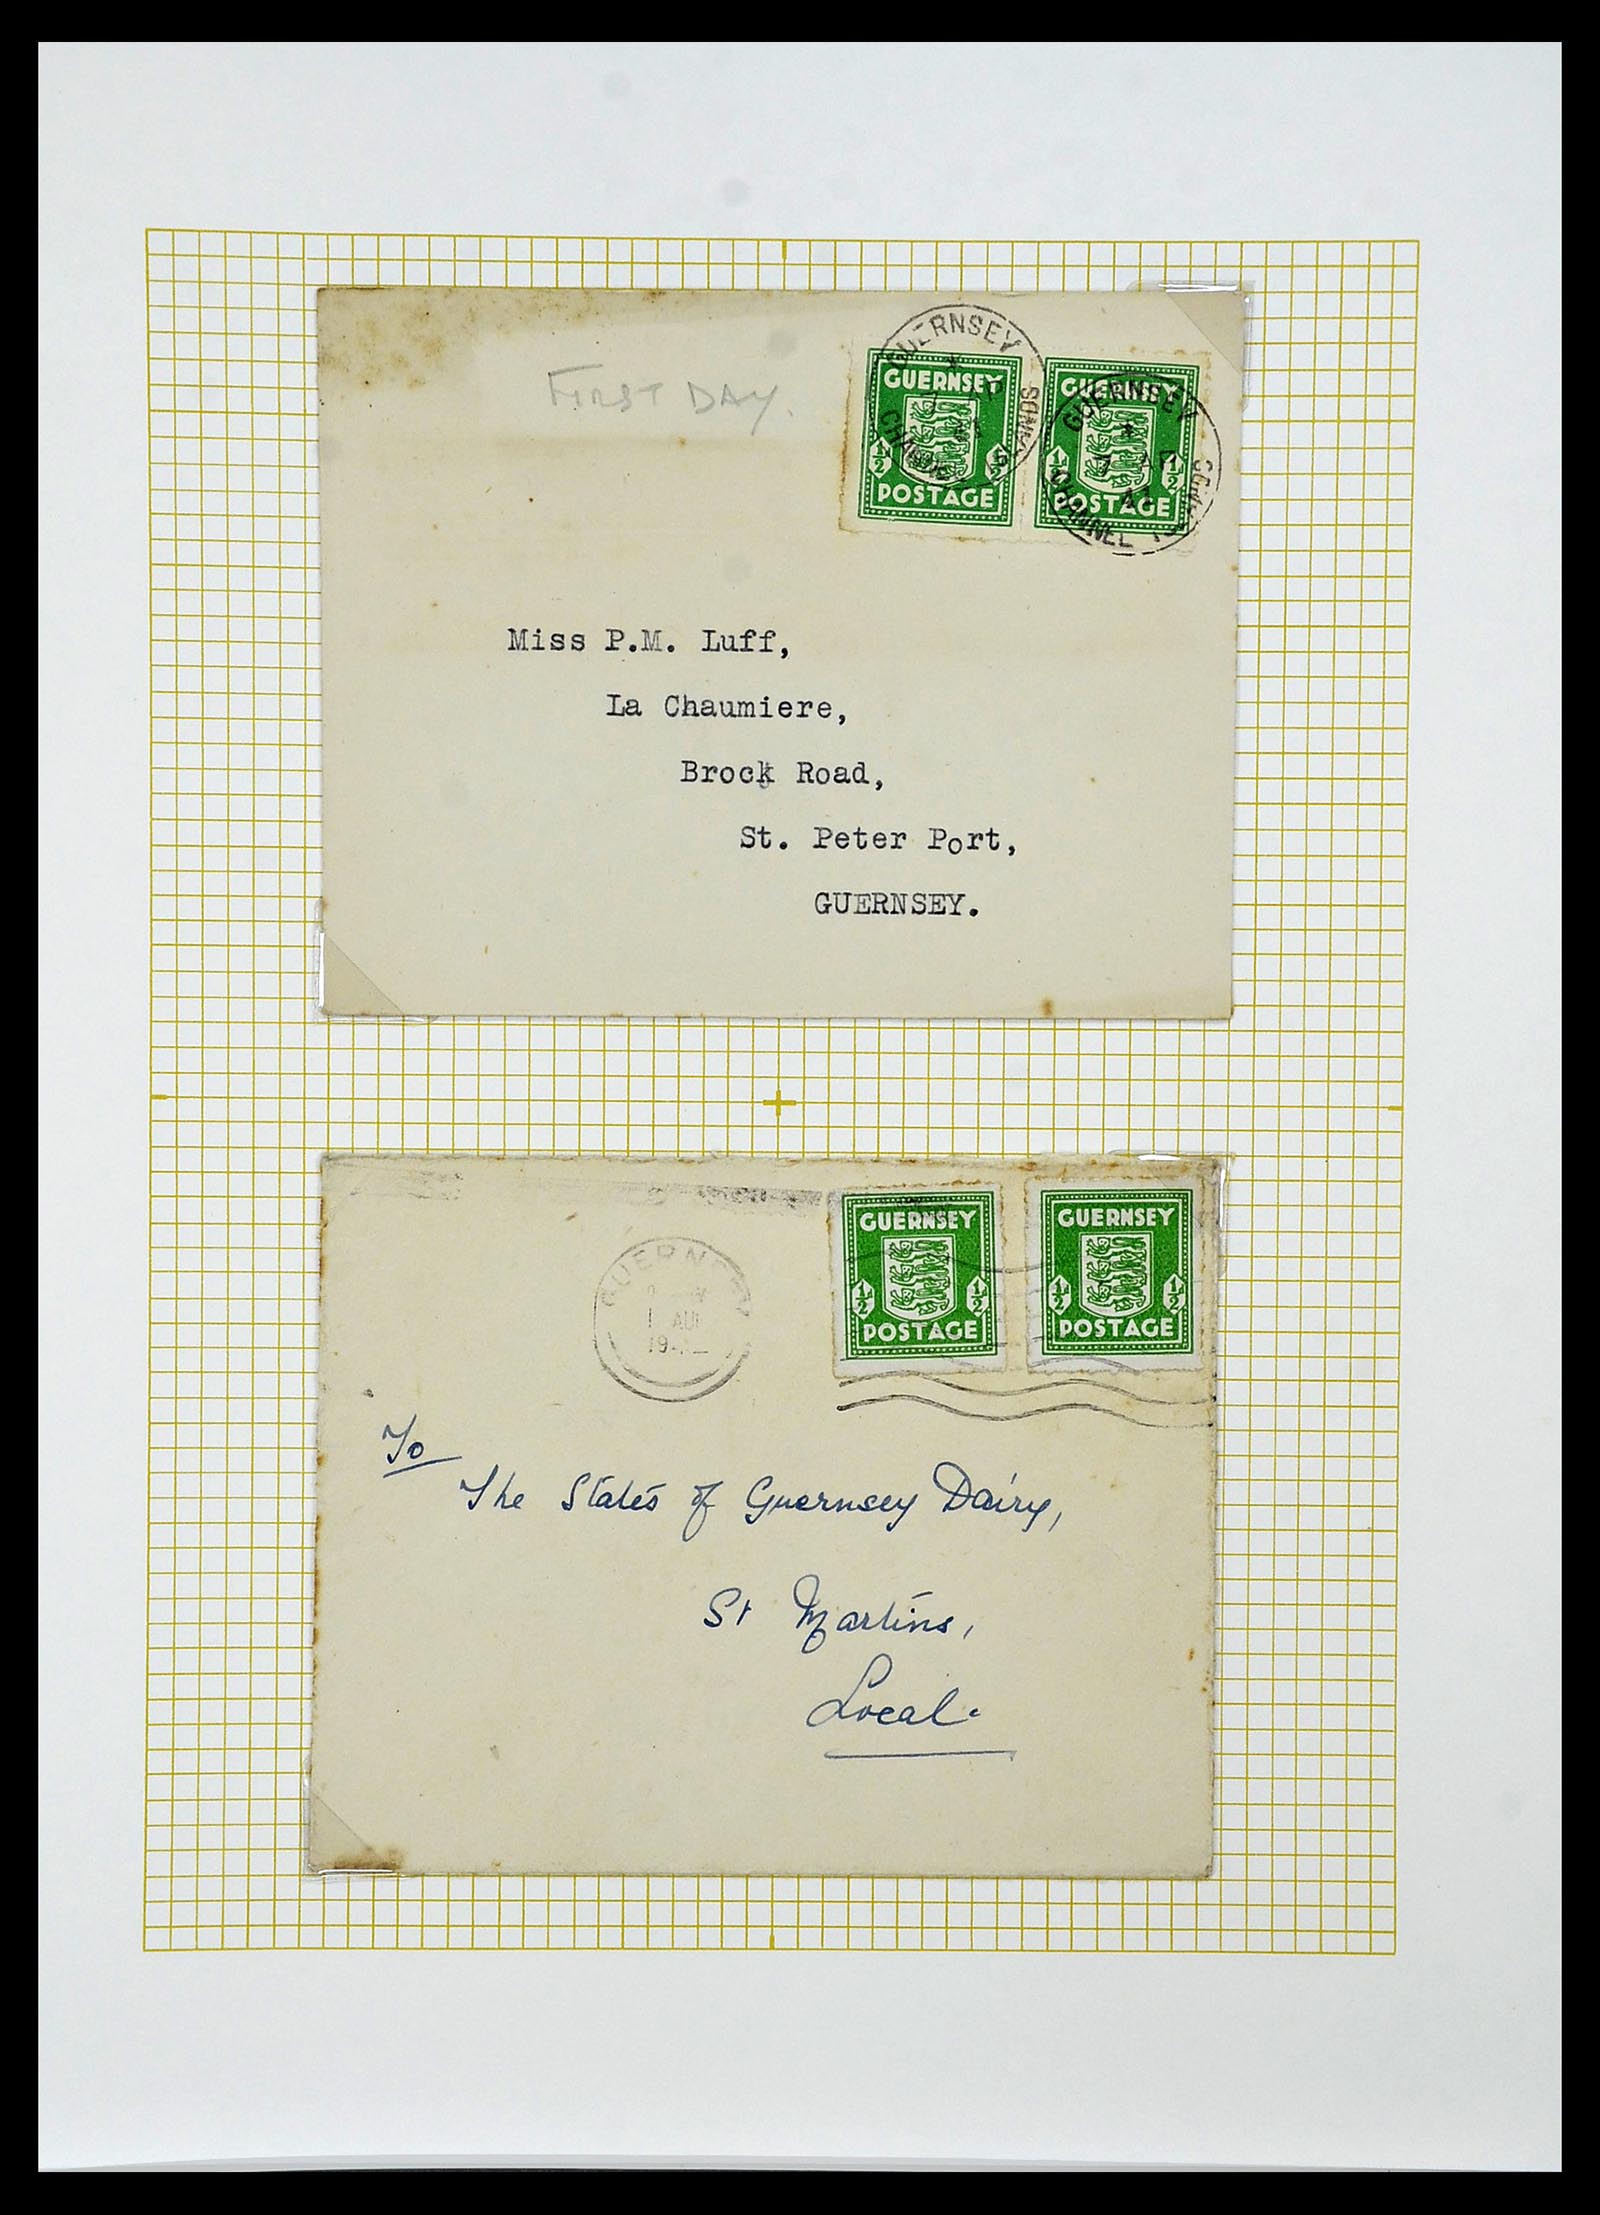 FIRST DAY.
GUERNSEY
7 AP
41
CHANNEL ISLANDS
GUERNSEY
1/2 1/2
POSTAGE
GUERNSEY
7 AP
41
CHANNEL
GUERNSEY
1/2 1/2
POSTAGE
Miss P.M. Luff,
La Chaumiere,
Brock Road,
St. Peter Port,
GUERNSEY.
GUERNSEY
1 AU
GUERNSEY
1/2 1/2
POSTAGE
GUERNSEY
1/2 1/2
POSTAGE
To
The States of Guernsey Dairy,
St Martins,
Local.